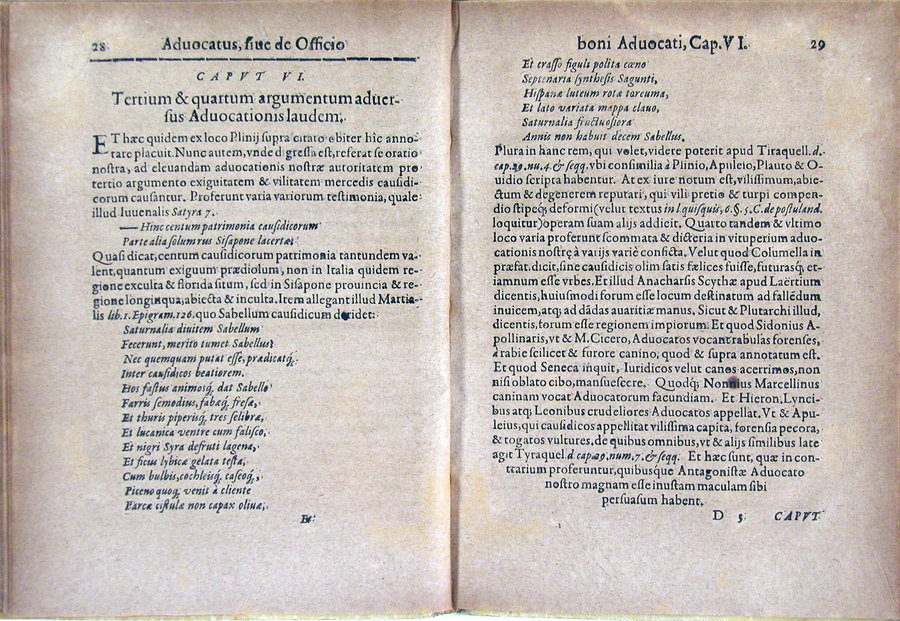 28 Advocatus, ſiue de Officio
CAPVT VI.
Tertium & quartum argumentum aduer-
ſus Aduocationis laudem.
ET hæc quidem ex loco Plinij ſupra citato obiter hîc anno-
tare placuit. Nunc autem, vnde digreſſa eſt, referat ſe oratio
noſtra, ad eleuandam aduocationis noſtræ autoritatem pro
tertio argumento exiguitatem & vilitatem mercedis cauſidi-
corum cauſantur. Proferunt varia variorum teſtimonia, quale
illud Iuuenalis Satyra 7.
— Hinc centum patrimonia cauſidicorum
Parte alia ſolum rus Siſapone lacertæ.
Quaſi dicat, centum cauſidicorum patrimonia tantundem va-
lent, quantum exiguum prædiolum, non in Italia quidem re-
gione exculta & florida ſitum, ſed in Siſapone prouincia & re-
gione longinqua, abiecta & inculta. Item allegant illud Martia-
lis lib. 1. Epigram. 126. quo Sabellum cauſidicum deridet:
Saturnalia diuitem Sabellum
Fecerunt, merito tumet Sabellus:
Nec quemquam putat eſſe, prædicatq́;
Inter cauſidicos beatiorem.
Hos faſtus animosq́; dat Sabello
Farris ſemodius, fabæq́; freſæ,
Et thuris piperisq́; tres ſelibræ,
Et lucanica ventre cum faliſco,
Et nigri Syra defruti lagena,
Et ficus lybicæ gelata teſta,
Cum bulbis, cochleisq́; caſeoq́;,
Piceno quoq; venit à cliente
Parcæ ciſtula non capax oliuæ,
Et
boni Aduocati, Cap. VI. 29
Et craſſo figuli polita cœno
Septenaria ſyntheſis Sagunti,
Hiſpanæ luteum rotæ toreuma,
Et lato variata mappa clauo,
Saturnalia fructuoſiora
Annis non habuit decem Sabellus.
Plura in hanc rem, qui volet, videre poterit apud Tiraquell. d.
cap. 29. nu. 4. & ſeqq. vbi conſimilia à Plinio, Apuleio, Plauto & O-
uidio ſcripta habentur. At ex iure notum eſt, viliſſimum, abie-
ctum & degenerem reputari, qui vili pretio & turpi compen-
dio ſtipeq́; deformi (velut textus in l. quiſquis, 6. §. 5. C. de poſtuland.
loquitur) operam ſuam alijs addicit. Quarto tandem & vltimo
loco varia proferunt ſcommata & dicteria in vituperium aduo-
cationis noſtrę à varijs variè conficta. Velut quod Columella in
præfat. dicit, ſine cauſidicis olim ſatis fælices fuiſſe, futurasq́; et-
iamnum eſſe vrbes. Et illud Anacharſis Scythæ apud Laërtium
dicentis, huiuſmodi forum eſſe locum deſtinatum ad fallēdum
inuicem, atq; ad dādas auaritiæ manus. Sicut & Plutarchi illud,
dicentis, forum eſſe regionem impiorum. Et quod Sidonius A-
pollinaris, vt & M. Cicero, Aduocatos vocant rabulas forenſes,
à rabie ſcilicet & furore canino, quod & ſupra annotatum eſt.
Et quod Seneca inquit, Iuridicos velut canos acerrimos, non
niſi oblato cibo, manſueſcere. Quodq́; Nonnius Marcellinus
caninam vocat Aduocatorum facundiam. Et Hieron. Lynci-
bus atq; Leonibus crudeliores Aduocatos appellat. Vt & Apu-
leius, qui cauſidicos appellitat viliſſima capita, forenſia pecora,
& togatos vultures, de quibus omnibus, vt & alijs ſimilibus late
agit Tyraquel. d. cap. 29. num. 7. & ſeqq. Et hæc ſunt, quæ in con-
trarium proferuntur, quibusque Antagoniſtæ Aduocato
noſtro magnam eſſe inuſtam maculam ſibi
perſuaſum habent.
D 5 CAPVT